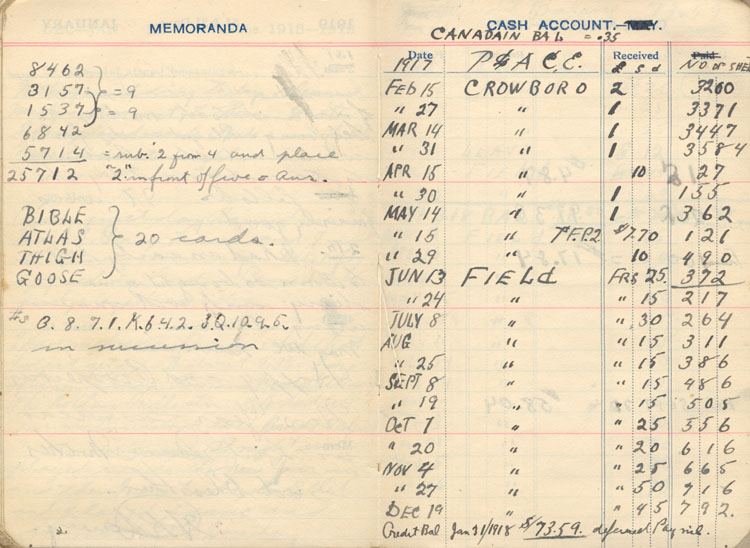 MEMORANDA
8462
3157 } = 9
1537 } = 9
6842
5714 = sub. 2 from 4 and place
25712 "2" in front of five = Ans.
BIBLE
ATLAS
THIGH
GOOSE
} 20 cards.
#3 8. 7. 1. K. 6. 4. 2. J. Q. 10. 9. 5.
in succession
2.
CASH ACCOUNT.—MAY.
CANADAIN BAL = .35
Date Received Paid
1917 PLACE. £ s d NO OF SHEET
FEB 15 CROWBORO 2 3200
" 27 " 1 3371
MAR 14 " 1 3447
" 31 " 1 3584
APR 15 " 10 27
" 30 " 1 155
MAY 14 " 1 362
" 15 " P.F.P.2 $7.70 121
" 29 " 10 490
JUN 13 FIELD FRS 25. 372
" 24 " " 15 217
JULY 8 " " 30 264
AUG " " 15 311
" 25 " " 15 386
SEPT 8 " " 15 486
" 19 " " 15 505
OCT 7 " " 25 556
" 20 " " 20 616
NOV 4 " " 25 665
" 27 " " 50 716
DEC 19 " " 45 792.
Credit Bal Jan 31/1918 $73.59. deferred Pay nil.